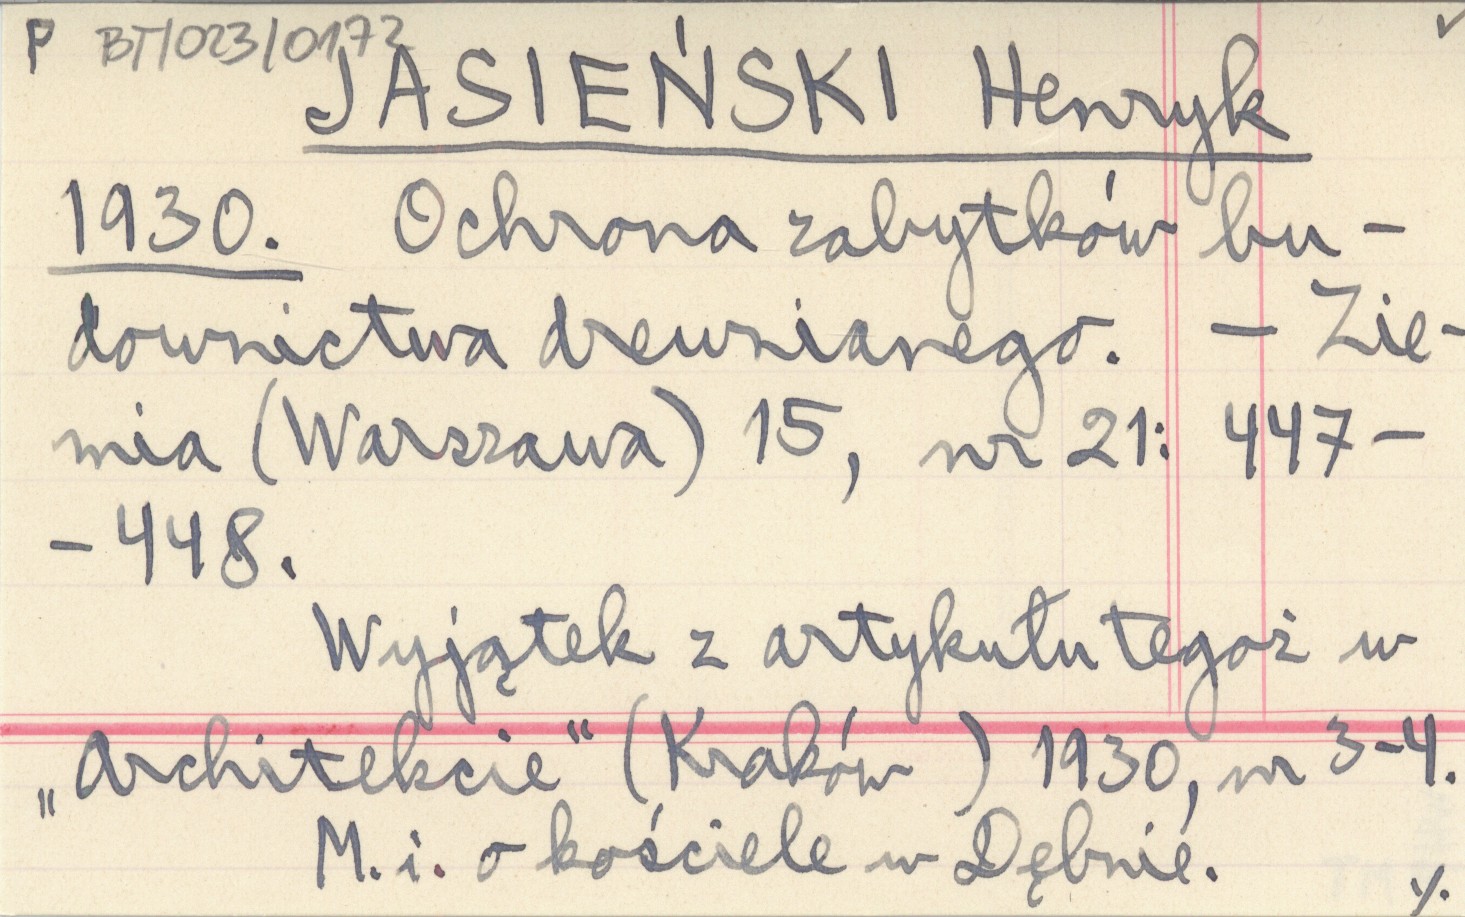 P BT/023/0172
JASIEŃSKI Henryk
1930. Ochrona zabytków bu-
downictwa drewnianego. — Zie-
mia (Warszawa) 15, nr 21: 447-
-448.
Wyjątek z artykułu tegoż w
„Architekcie“ (Kraków ) 1930, nr 3-4.
M. i. o kościele w Dębnie.
y.